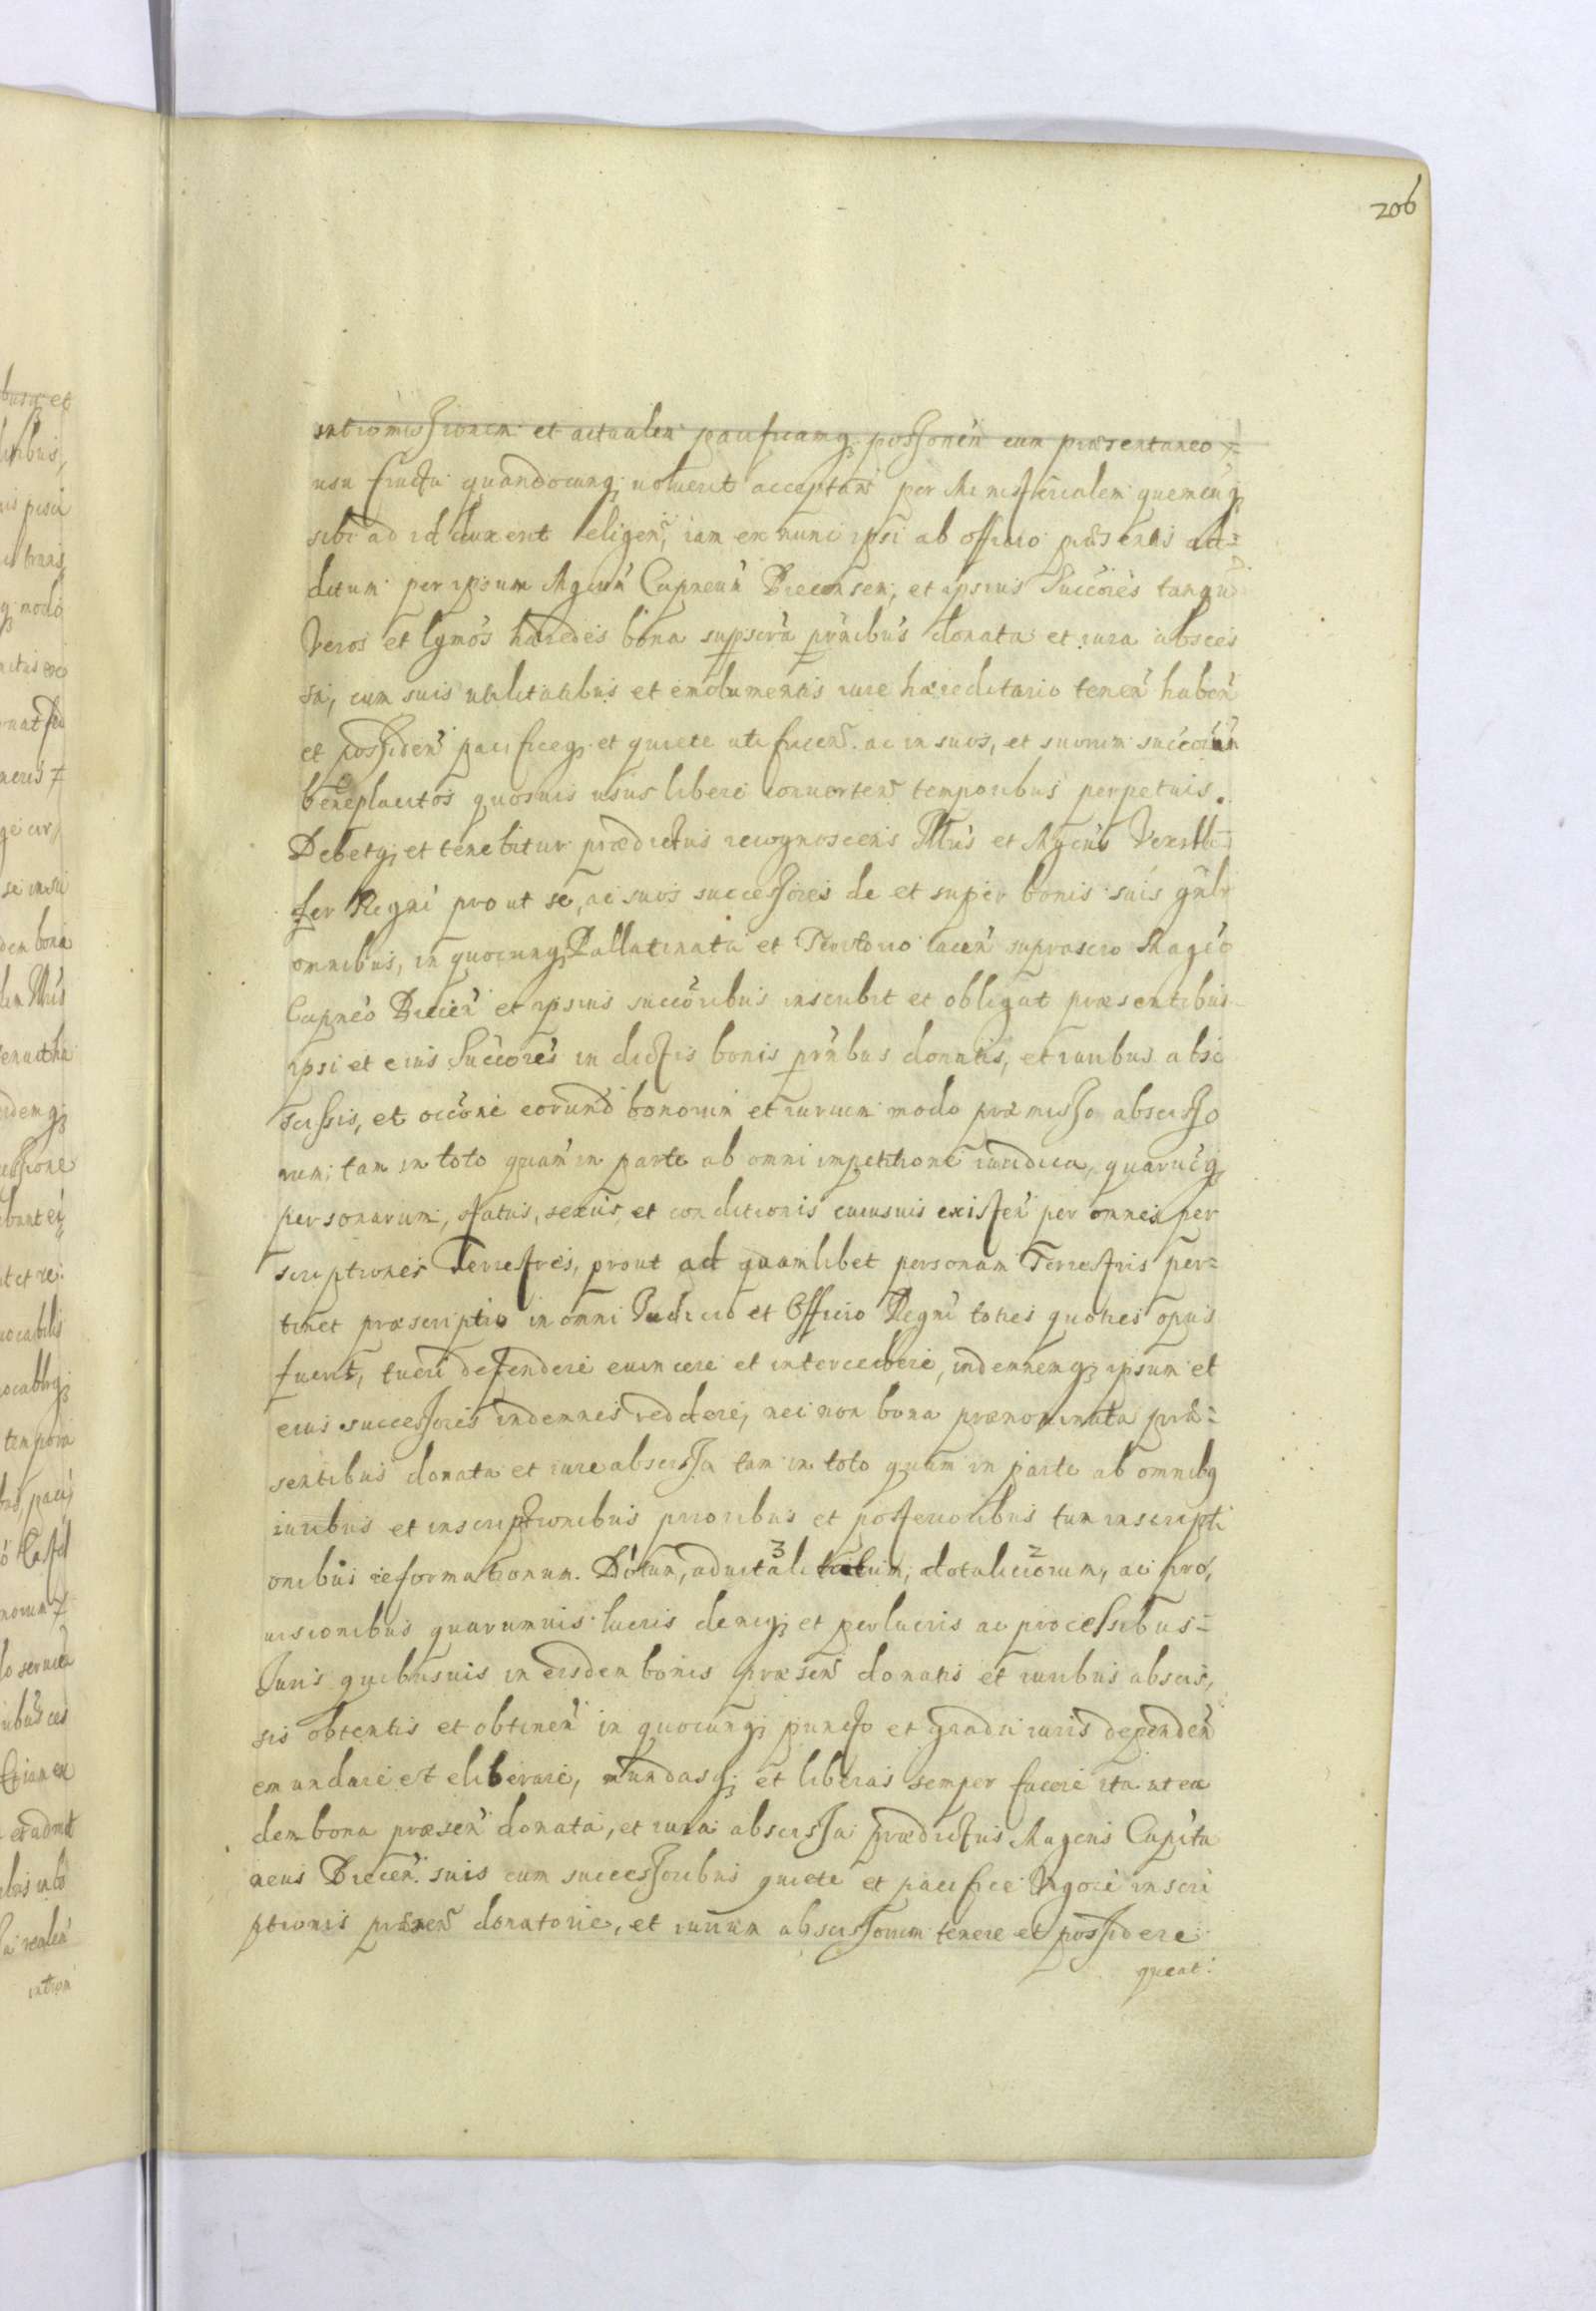 206
intromissionem et actualem pacificamq possonem cum præsentaneo
usu fructu quandocunq uoluerit acceptan per Ministerialem quemcuq
sibi ad id duxerit eligen, iam ex nunc ipsi ab officio præsenti ad=
ditum per ipsum Mgcum Capneum Brecensen, et ipsius Succores tanqu
Veros et lgmos hæredes bona suprscra prnibus donata et iura absces
sa, cum suis utilitatibus et emolumentis iure hæreditario tenen haben
et possiden pacificeq et quiete uti fruen ac in suos, et suorum succorum
beneplacitos quosuis usus libere conuerten temporibus perpetuis.
Debetq et tenebitur prædictus recognoscens Illus et Mgcus Vexilli
fer Regni prout se, ac suos successores de et super bonis suis gnlr
omnibus, in quocunq Pallatinatu et Territorio iacen suprascro Magco
Capneo Brecen et ipsius succoribus inscribit et obligat præsentibus
ipsi et eius Succores in dictis bonis prnbus donatis, et iuribus absc
scissis, et occone eorund bonorum et iurium modo præmisso abscisso
rum, tam in toto quam in parte ab omni impetitione iuridica, quarucq
personarum, status, sexus, et conditionis cuiusuis existen per omnes per
scriptiones Terrestres, prout ad quamlibet personam Terrestris per=
tinet præscriptio in omni Judicio et Officio Regni toties quoties opus
fuerit, tueri defendere euincere et intercedere, indemnemq ipsum et
eius successores indemnes reddere, nec non bona prænominata præ=
sentibus donata et iure abscissa tam in toto quam in parte ab omnibq
iuribus et inscriptionibus prioribus et posterioribus tum inscripti
onibus reformationum. Dotum, aduitalitatum, 3 dotaliciorum, 2 ac pro,
uisionibus quarumuis lucris deniq et perlucris ac processibus=
Juris quibusuis in eisdem bonis præsen donatis et iuribus abscis,
sis obtentis et obtinen in quocunq puncto et gradu iuris dependen
emundare et eliberare, mundasq et liberas semper facere ita ut ea
dem bona præsen donata, et iura abscissa prædictus Magcus Capita
neus Brecen. suis cum successoribus quiete et pacifice Vigore inscri
ptionis præsen donatorie, et iurium abscissorum tenere et possidere
queat.